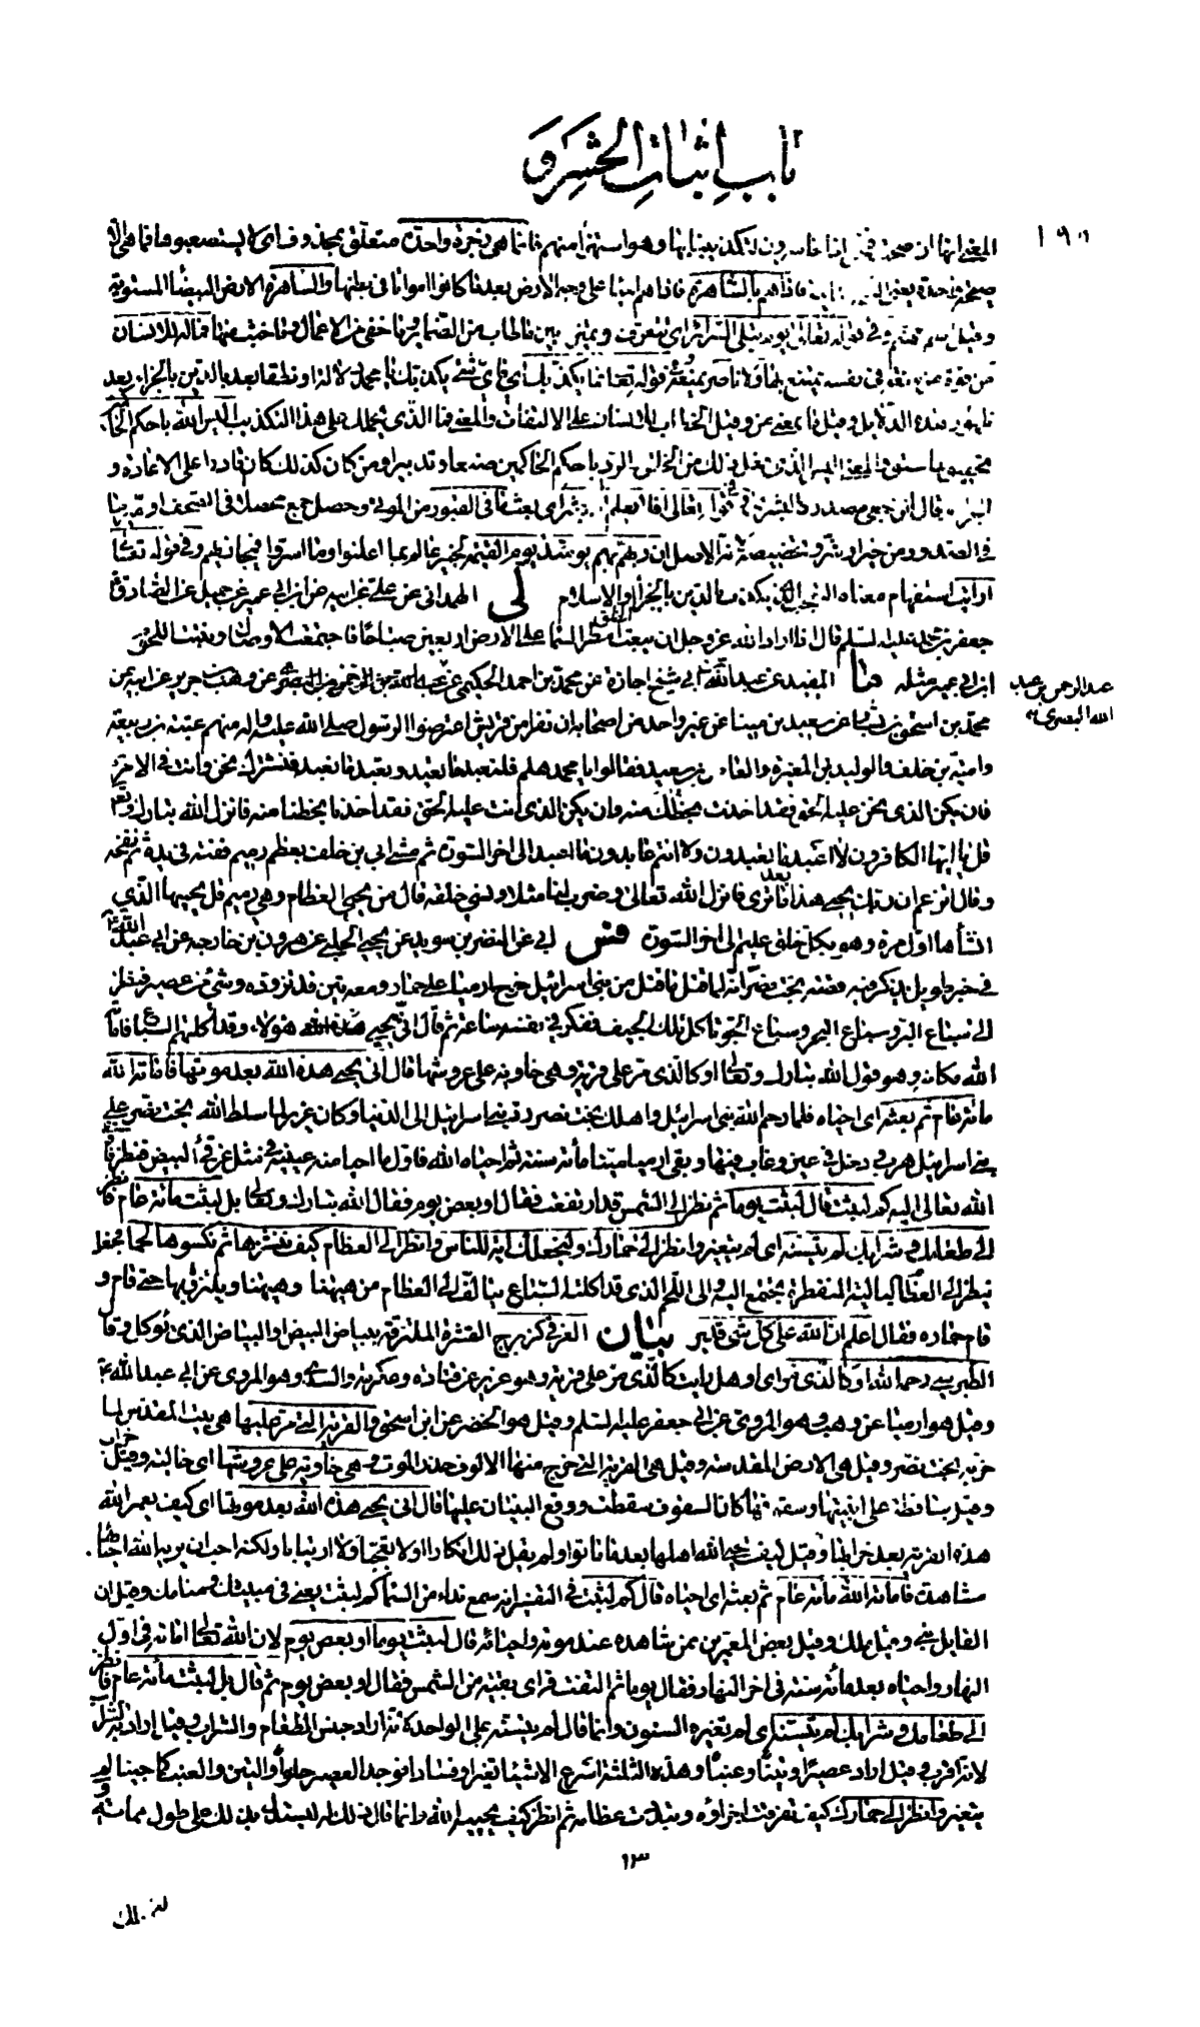 باب اثبات الحشر و
المعنى انها ان صحت فنحن اذا خاسرون لتكذيبنا بها وهو استهزاء منهم فانما هي زجرة واحدة متعلق بمحذوف اى لا يستصعبوها فما هي الا
صيحة واحدة يعنى فاذاهم بالساهرة فاذاهم احياء على وجه الارض بعد ما كانوا امواتا فى بطنها والساهرة الارض البيضاء المستوية
وقيل اسم جهنم وفى قوله تعالى يوم تبلى السرائر اى تتعرف ويميز بين ما طاب من الضماير وما خفى من الاعمال وما خبث منها فما له للانسان
من قوة من منعة فى نفسه يمتنع بها ولا ناصر يمنعه وقوله تعالى فما يكذبك اى فاى شئ يكذبك يا محمد دلالة او نطقا بعد بالدين بالجزاء بعد
ظهور هذه الدلايل وقيل ما بمعنى من وقيل الخطاب للانسان على الالتفات والمعنى فما الذى يحملك على هذا التكذيب اليس الله باحكم الحاكمين
تحقيق لما سبق والمعنى اليس الذى فعل ذلك من الخلق والرد باحكم الحاكمين صنعا وتدبيرا ومن كان كذلك كان قادرا على الاعادة و
الجزاء فى قوله تعالى افلا يعلم اذا بعثر اى بعث ما فى القبور من الموتى وحصل جمع محصلا فى الصحف او ميز ما
فى الصدور من خير او شر وتخصيصه لانه الاصل ان ربهم بهم يومئذ يوم القيمة لخبير عالم بما اعلنوا وما اسروا فيجازيهم وفى قوله تعالى
ارايت استفهام معناه التعجب الذى يكذب بالدين بالجزاء او الاسلام لى الهمدانى عن على عن ابيه عن ابن ابى عمير عن جميل عن الصادق
جعفر بن محمد عليه السلم قال اذا اراد الله عز وجل ان يبعث الخلق امطر السماء على الارض اربعين صباحا فاجتمعت الاوصال ونبتت اللحوم
ابن ابى عمير مثله ما المفيد عن عبد الله بن ابى شيخ اجازة عن محمد بن احمد الحكيمى عن عبد الرحمن بن عبد الله البصرى عن وهب بن جرير عن ابيه عن
محمد بن اسحق بن يسار عن سعيد بن مينا عن غير واحد من اصحابه ان نفرا من قريش اعترضوا الرسول صلى الله عليه واله منهم عتبة بن ربيعة
وامية بن خلف والوليد بن المغيرة والعاص بن سعيد فقالوا يا محمد هلم فلنعبد ما تعبد وتعبد ما نعبد فنشترك نحن وانت فى الامر
فان يكن الذى نحن عليه الحق فقد اخذت بحظك منه وان يكن الذى انت عليه الحق فقد اخذنا بحظنا منه فانزل الله تبارك وتعالى
قل يا ايها الكافرون لا اعبد ما تعبدون ولا انتم عابدون ما اعبد الى اخر السورة ثم مشى ابى بن خلف بعظم رميم ففته فى يده ثم نفخه
وقال اتزعم ان ربك يحيى هذا بعد ما ترى فانزل الله تعالى وضرب لنا مثلا ونسى خلقه قال من يحيى العظام وهى رميم قل يحييها الذى
انشأها اول مرة وهو بكل خلق عليم الى اخر السورة فس ابى عن النضر بن سويد عن يحيى الحلبى عن هرون بن خارجه عن ابى عبد الله ع
فى خبر طويل يذكر فيه قصة بخت نصر انه لما قتل ما قتل من بنى اسرائيل خرج ارميا على حمار ومعه تين قد تزوده وشئ من عصير فنظر
الى سباع البر وسباع البحر وسباع الجو تاكل تلك الجيف ففكر فى نفسه ساعة ثم قال انى يحيى الله هولاء وقد اكلتهم السباع فاماته
الله مكانه وهو قول الله تبارك وتعالى او كالذى مر على قرية وهى خاوية على عروشها قال انى يحيى هذه الله بعد موتها فاماته الله
مائة عام ثم بعثه اى احياه فلما رحم الله بنى اسرائيل واهلك بخت نصر رد بنى اسرائيل الى الدنيا وكان عزير لما سلط الله بخت نصر على
بنى اسرائيل هرب ودخل فى عين وغاب فيها وبقى ارميا ميتا مائة سنة ثم احياه الله فاول ما احيا منه عينيه فى مثل غرقئ البيض فنظر فاوحى
الله تعالى اليه كم لبثت قال لبثت يوما ثم نظر الى الشمس قد ارتفعت فقال او بعض يوم فقال الله تبارك وتعالى بل لبثت مائة عام فانظر
الى طعامك وشرابك لم يتسنه اى لم يتغير وانظر الى حمارك ولنجعلك اية للناس وانظر الى العظام كيف ننشزها ثم نكسوها لحما فجعل
ينظر الى العظام البالية المنفطرة يجتمع اليه والى اللحم الذى قد اكلته السباع يتالف الى العظام من هيهنا وهيهنا ويلتزق بها حتى قام و
قام حماره فقال اعلم ان الله على كل شئ قدير بيان الغرقئ كزبرج القشرة الملتزقة ببياض البيض او البياض الذى يؤكل وقال
الطبرسى رحمه الله او كالذى مر اى او هل رايت كالذى مر على قرية وهو عزير عن قتاده وعكرمة والسدى وهو المروى عن ابى عبد الله ع
وقيل هو ارميا عن وهب وهو المروى عن ابى جعفر عليه السلم وقيل هو الخضر عن ابن اسحق والقرية التى مر عليها هى بيت المقدس لما
خربه بخت نصر وقيل هى الارض المقدسة وقيل هى القرية التى خرج منها الالوف حذر الموت وهى خاوية على عروشها اى خالية وقيل خراب
وقيل ساقطة على ابنيتها وسقوفها كان السقوف سقطت ووقع البنيان عليها قال انى يحيى هذه الله بعد موتها اى كيف يعمر الله
هذه القرية بعد خرابها وقيل كيف يحيى الله اهلها بعد ما ماتوا ولم يقل ذلك انكارا ولا تعجبا ولا ارتيابا ولكنه احب ان يريه الله احياءها
مشاهدة فاماته الله مائة عام ثم بعثه اى احياه قال كم لبثت فى التفسير انه سمع نداء من السماء كم لبثت يعنى فى مبيتك ومنامك وقيل ان
القايل نبى وقيل ملك وقيل بعض المعمرين ممن شاهده عند موته واحيائه قال لبثت يوما او بعض يوم لان الله تعالى اماته فى اول
النهار واحياه بعد مائة سنة فى اخر النهار فقال يوما ثم التفت فراى بقية من الشمس فقال او بعض يوم ثم قال بل لبثت مائة عام فانظر
الى طعامك وشرابك لم يتسنه اى لم تغيره السنون وانما قال لم يتسنه على الواحد لانه اراد جنس الطعام والشراب وقيل اراد به الشراب
لانه اقرب وقيل اراد عصيرا وتينا وعنبا وهذه الثلثة اسرع الاشياء تغيرا وفسادا فوجد العصير حلوا والتين والعنب كما جنيا لم
يتغير وانظر الى حمارك كيف تفرقت اجزاؤه وتبددت عظامه ثم انظر كيف يحييه الله وانما قال ذلك له ليستدل بذلك على طول مماته
عبد الرحمن بن عبد
الله البصرى
١٣